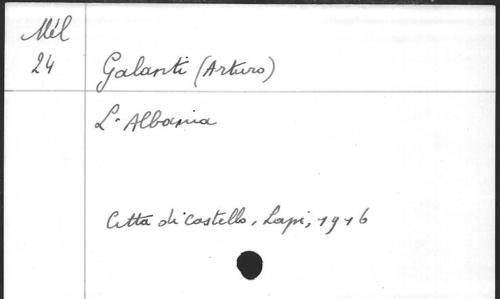 Mél
24
Galanti (Arturo)
L'Albania
Citta di Castello, Lapi, 1916